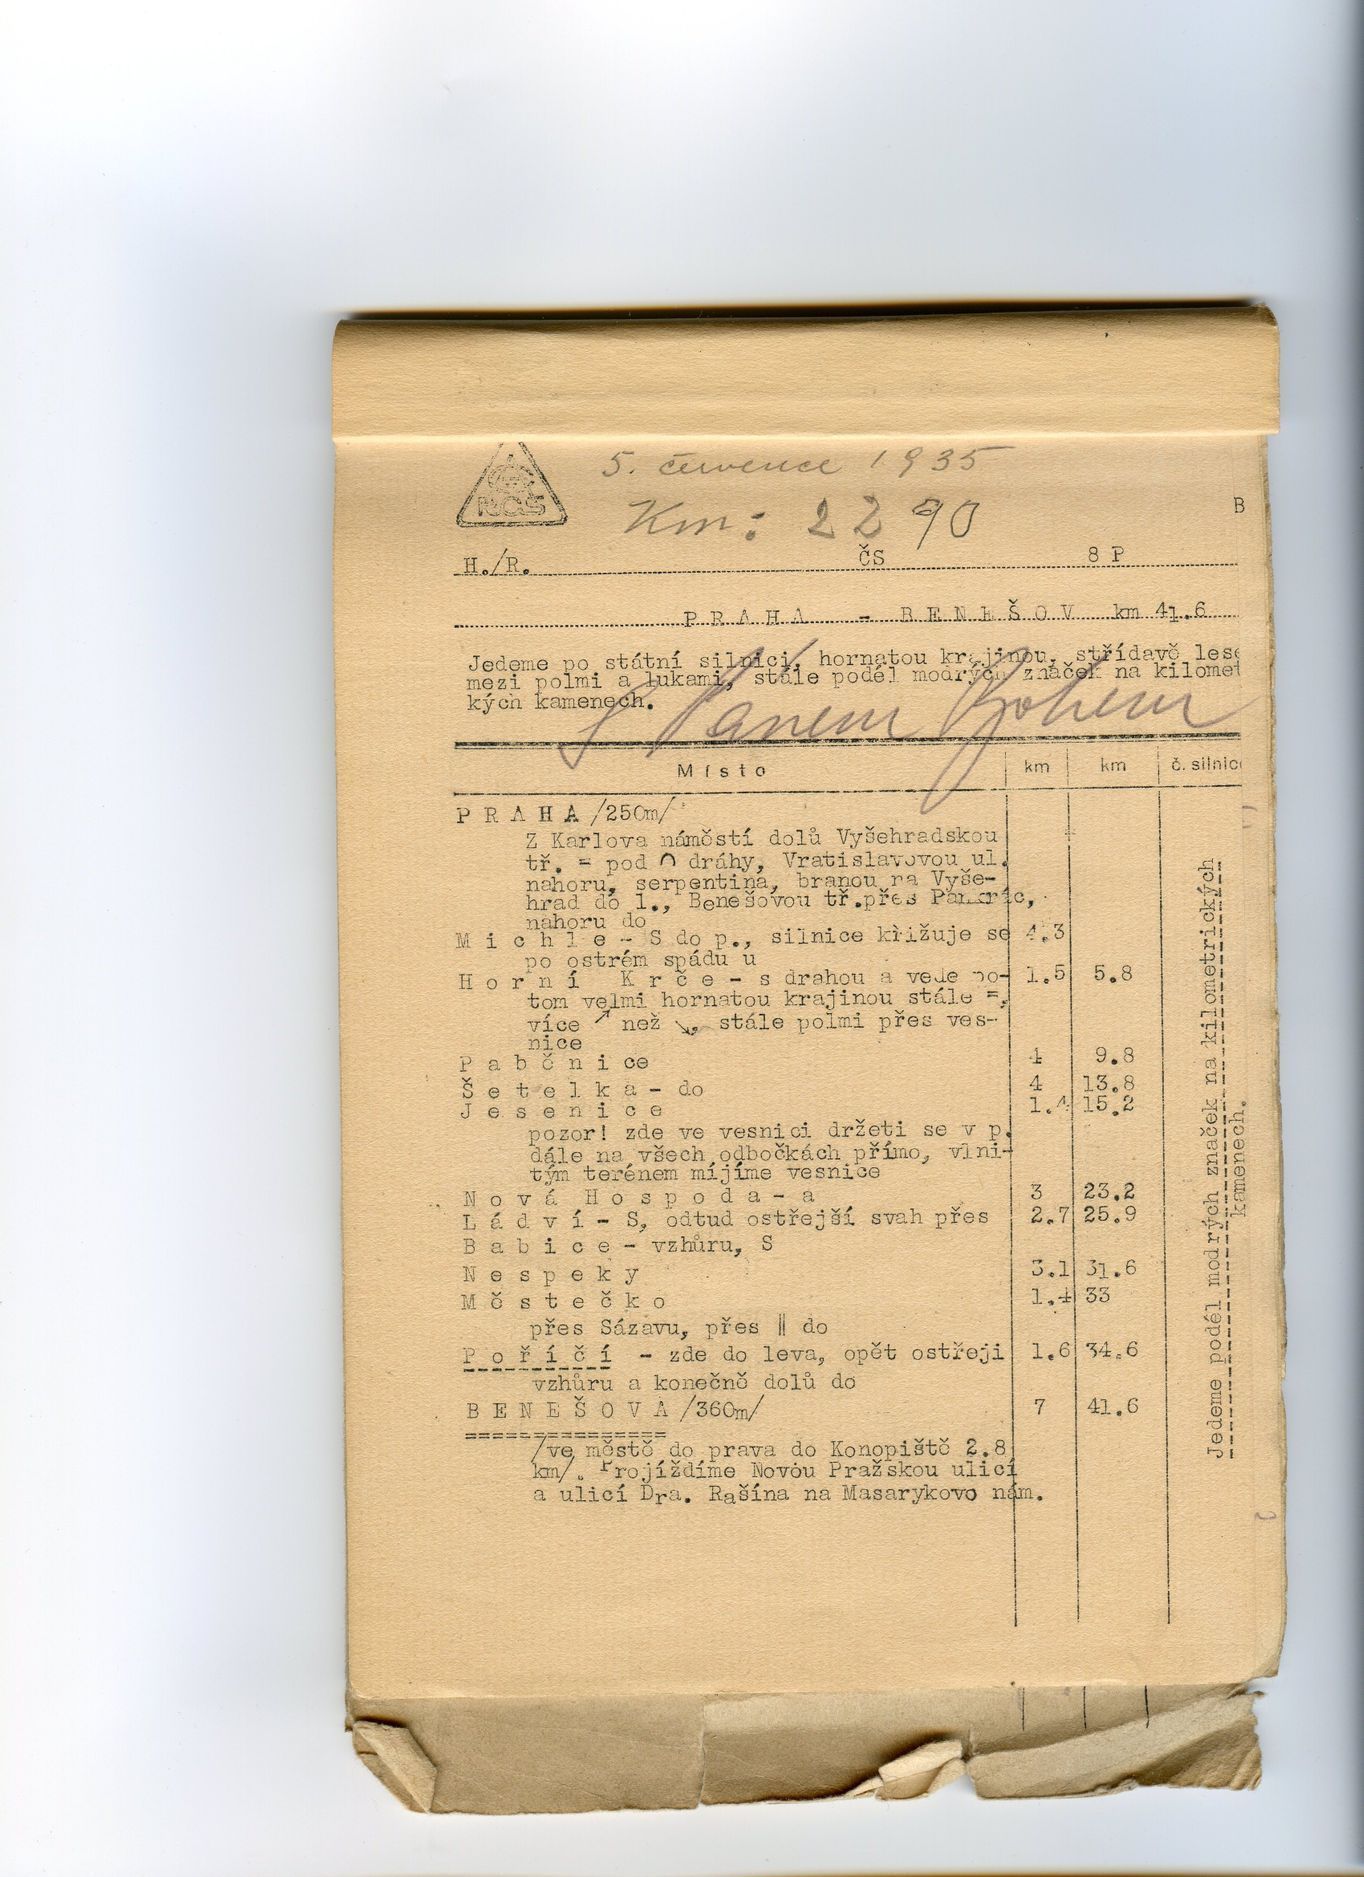 RAČS
5. července 1935
Km: 2290
B
H./R. ČS 8 P
PRAHA - BENEŠOV km 41.6
Jedeme po státní silnici, hornatou krajinou, střídavě lese
mezi polmi a lukami, stále podél modrých značek na kilomet
kých kamenech.
S Pánem Bohem
Místo km km č. silnic
PRAHA /250m/
Z Karlova náměstí dolů Vyšehradskou
tř. = pod ∩ dráhy, Vratislavovou ul.
nahoru, serpentina, branou na Vyše-
hrad do l., Benešovou tř.přes Pankrác,
nahoru do
Michle - S do p., silnice křižuje se 4.3
po ostrém spádu u
Horní Krče - s drahou a vede po- 1.5 5.8
tom velmi hornatou krajinou stále =,
více ↗ než ↘, stále polmi přes ves-
nice
Paběnice 4 9.8
Šetelka - do 4 13.8
Jesenice 1.4 15.2
pozor! zde ve vesnici držeti se v p.
dále na všech odbočkách přímo, vlni-
tým terénem míjíme vesnice
Nová Hospoda - a 3 23.2
Ládví - S, odtud ostřejší svah přes 2.7 25.9
Babice - vzhůru, S
Nespeky 3.1 31.6
Městečko 1.4 33
přes Sázavu, přes || do
Poříčí - zde do leva, opět ostřeji 1.6 34.6
vzhůru a konečně dolů do
BENEŠOVA /360m/ 7 41.6
/ve městě do prava do Konopiště 2.8
km/. Projíždíme Novou Pražskou ulicí
a ulicí Dra. Rašína na Masarykovo nám.
Jedeme podél modrých značek na kilometrických
kamenech.